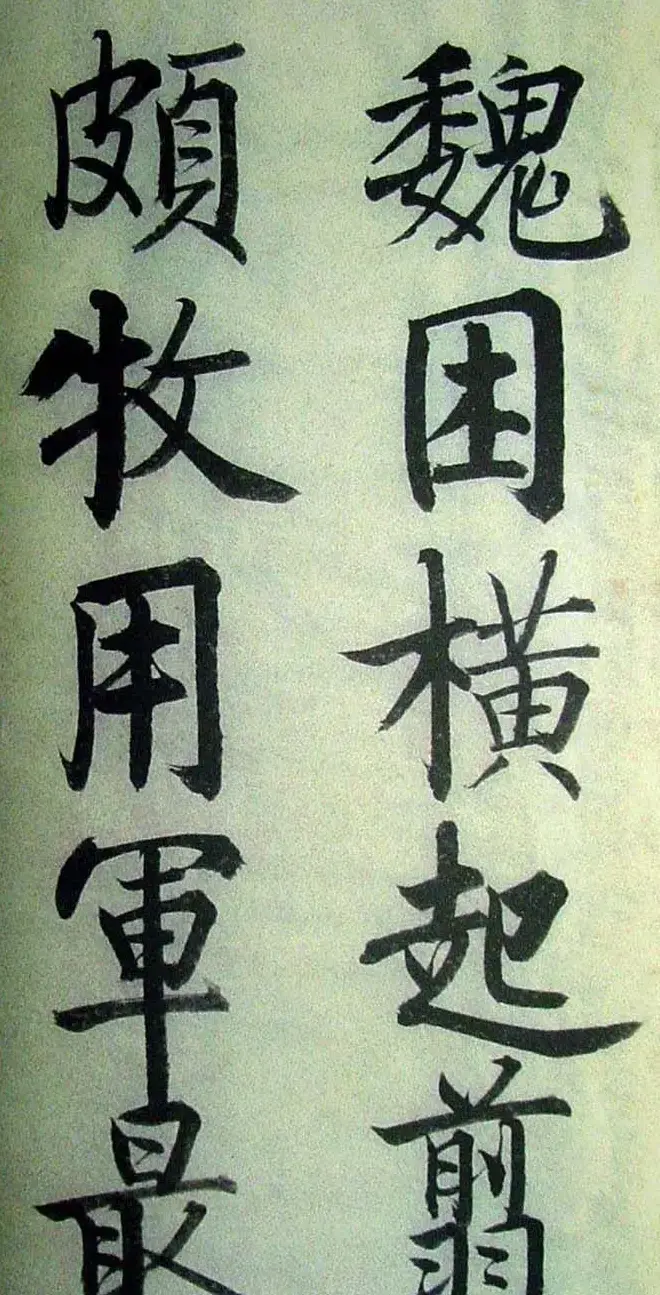 魏困横起翦
頗牧用軍最